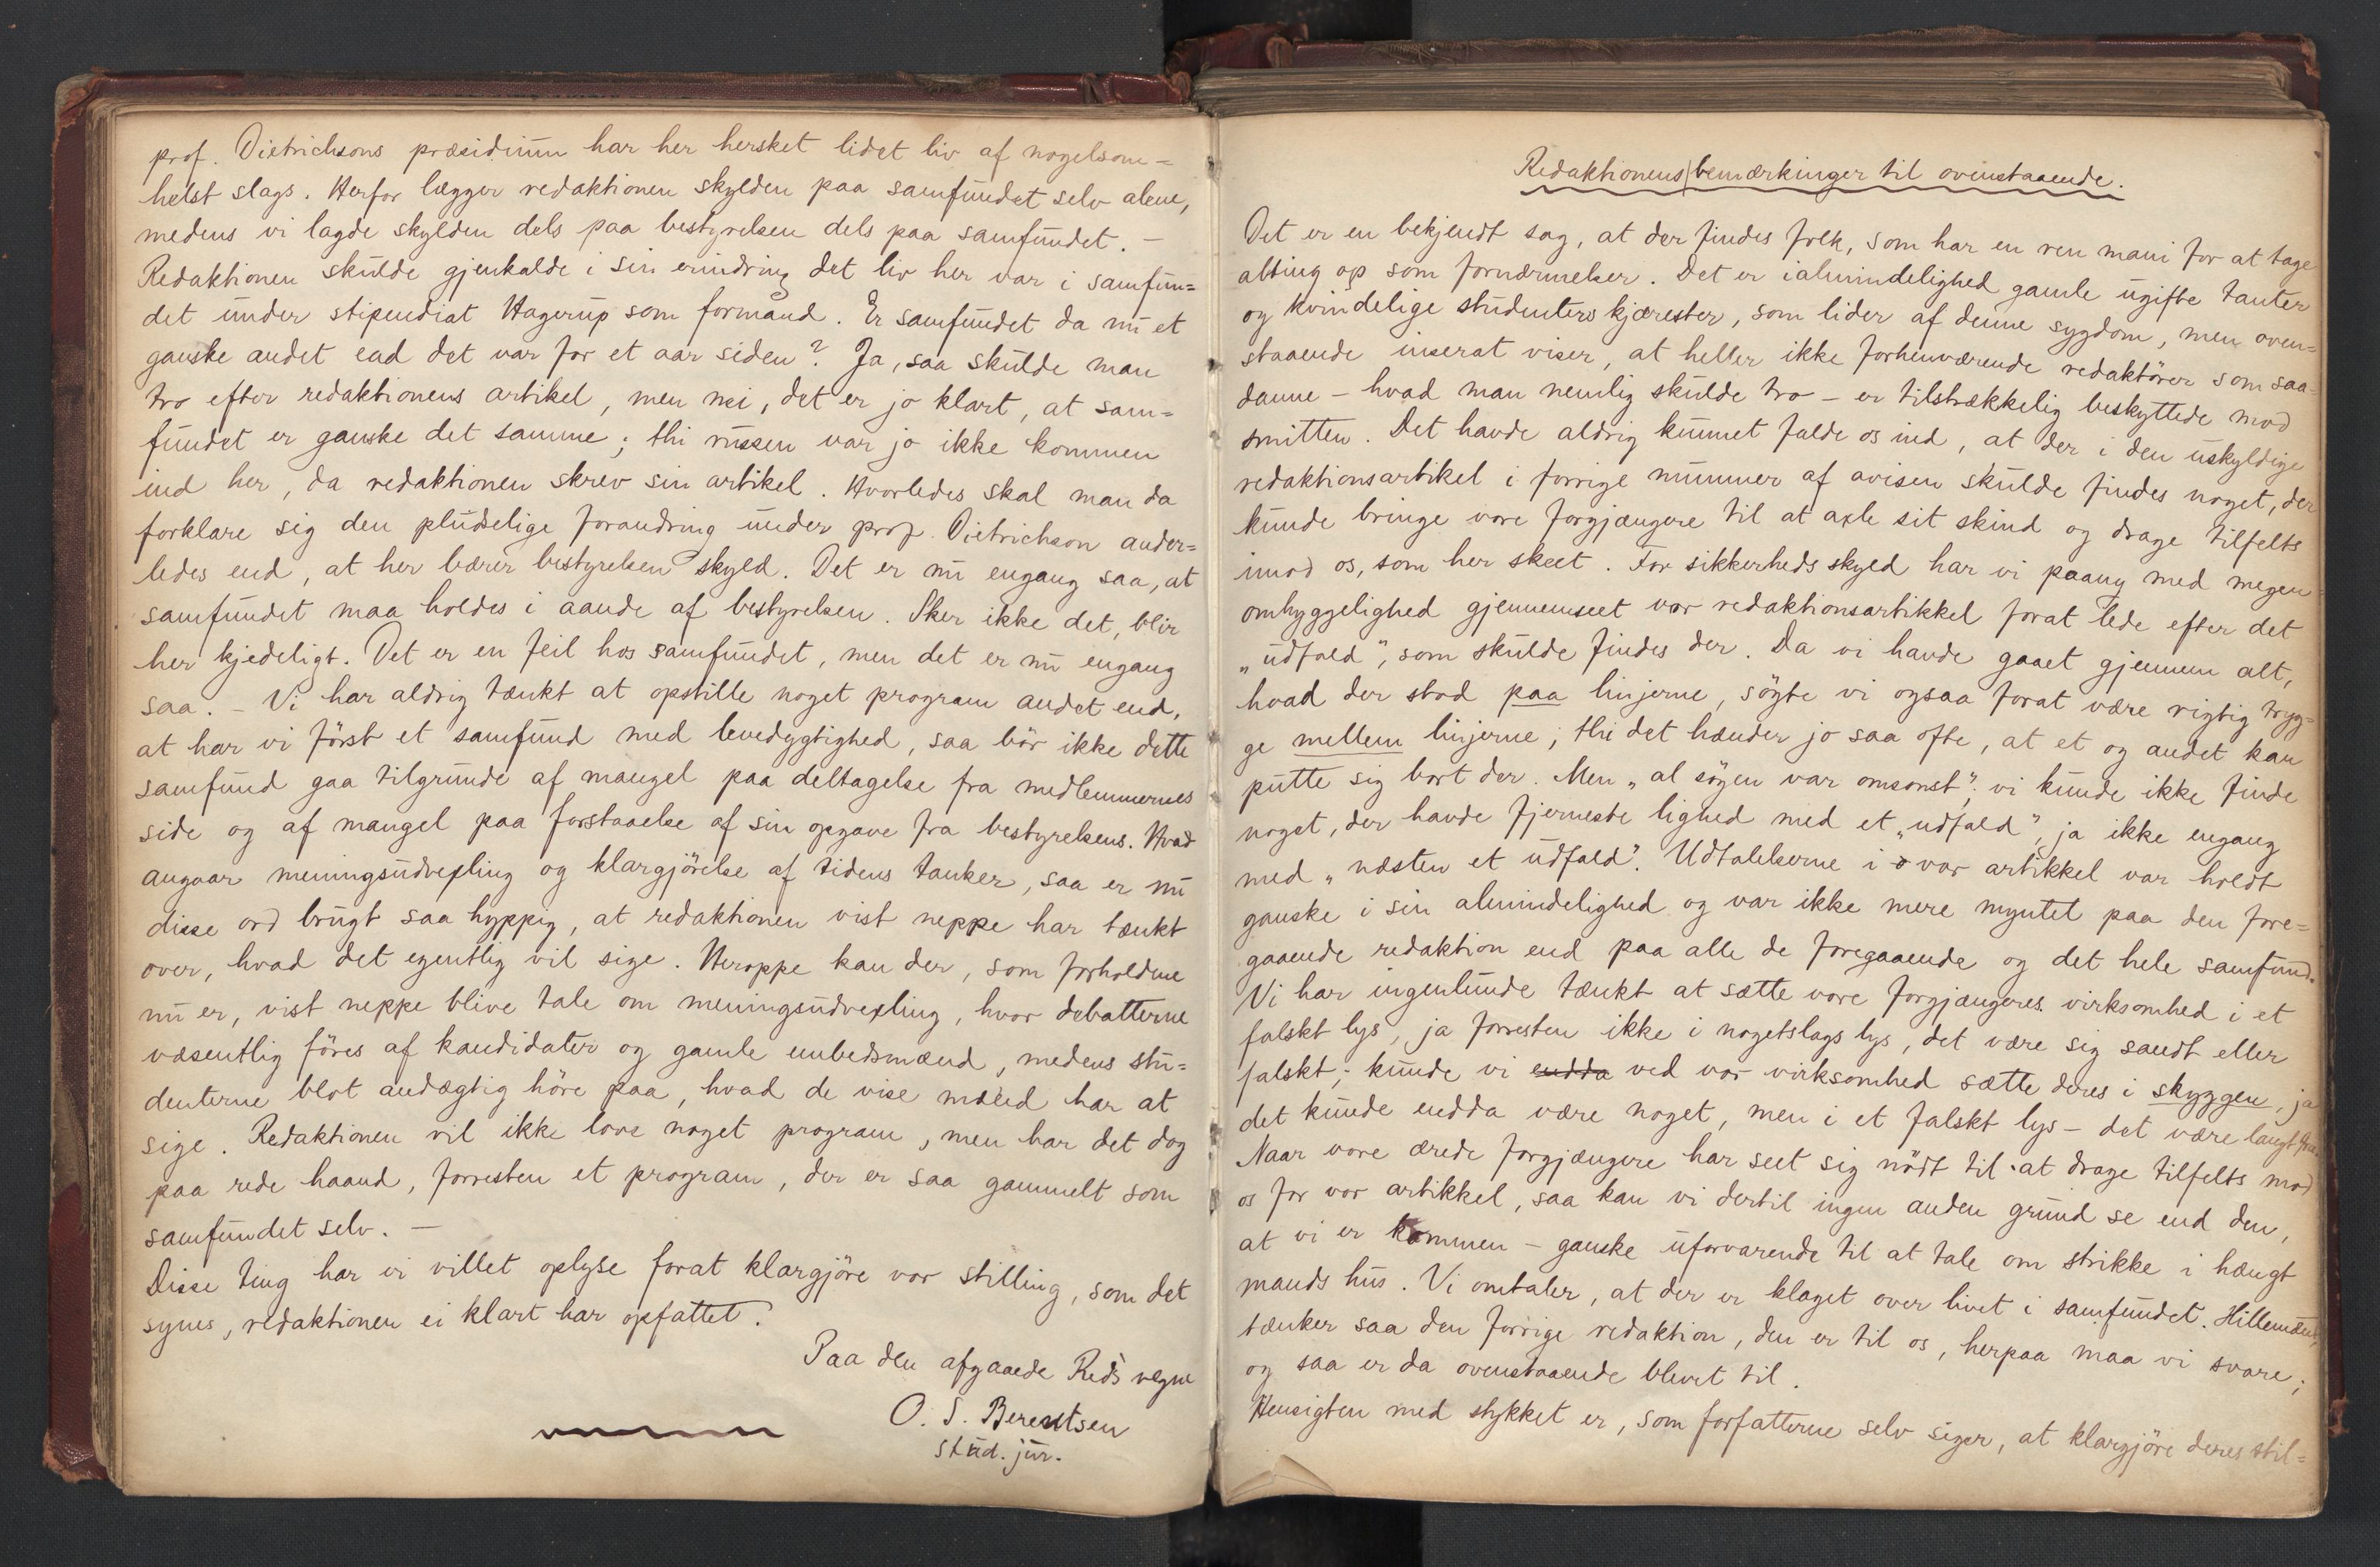 prof. Dietrichsons præsidium har her hersket lidet liv af nogelsom=
helst slags. Herfor lægger redaktionen skylden paa samfundet selv alene,
medens vi lagde skylden dels paa bestyrelsen dels paa samfundet. –
Redaktionen skulde gjenkalde i sin erindring det liv her var i samfun=
det under stipendiat Hagerup som formand. Er samfundet da nu et
ganske andet end det var for et aar siden? Ja, saa skulde man
tro efter redaktionens artikel, men nei, det er jo klart, at sam=
fundet er ganske det samme; thi russen var jo ikke kommen
ind her, da redaktionen skrev sin artikel. Hvorledes skal man da
forklare sig den pludselige forandring under prof. Dietrichson ander=
ledes end, at her bærer bestyrelsen skyld. Det er nu engang saa, at
samfundet maa holdes i aande af bestyrelsen. Sker ikke det, blir
her kjedeligt. Det er en feil hos samfundet, men det er nu engang
saa. – Vi har aldrig tænkt at opstille noget program andet end,
at har vi först et samfund med levedygtighed, saa bör ikke dette
samfund gaa tilgrunde af mangel paa deltagelse fra medlemmernes
side og af mangel paa forstaaelse af sin opgave fra bestyrelsens. Hvad
angaar meningsudvexling og klargjörelse af tidens tanker, saa er nu
disse ord brugt saa hyppig, at redaktionen vist neppe har tænkt
over, hvad det egentlig vil sige. Heroppe kan der, som forholdene
nu er, vist neppe blive tale om meningsudvexling, hvor debatterne
væsentlig föres af kandidater og gamle embedsmænd, medens stu=
denterne blot andægtig höre paa, hvad de vise mænd har at
sige. Redaktionen vil ikke love noget program, men har det dog
paa rede haand, forresten et program, der er saa gammelt som
samfundet selv. –
Disse ting har vi villet oplyse forat klargjöre vor stilling, som det
synes, redaktionen ei klart har opfattet.
Paa den afgaaede Red's vegne
O. S. Berentsen
stud. jur.
Redaktionens bemærkinger til ovenstaaende.
Det er en bekjendt sag, at der findes folk, som har en ren mani for at tage
alting op som fornærmelser. Det er ialmindelighed gamle ugifte tanter
og kvindelige studenters kjærester, som lider af denne sygdom, men oven=
staaende inserat viser, at heller ikke forhenværende redaktörer som saa=
danne – hvad man nemlig skulde tro – er tilstrækkelig beskyttede mod
smitten. Det havde aldrig kunnet falde os ind, at der i den uskyldige
redaktionsartikel i forrige nummer af avisen skulde findes noget, der
kunde bringe vore forgjængere til at axle sit skind og drage tilfelts
imod os, som her skeet. For sikkerheds skyld har vi paany med megen
omhyggelighed gjennemseet vor redaktionsartikkel forat lede efter det
„udfald", som skulde findes der. Da vi havde gaaet gjennem alt,
hvad der stod paa linjerne, sögte vi ogsaa forat være rigtig tryg=
ge mellem linjerne; thi det hænder jo saa ofte, at et og andet kan
putte sig bort der. Men „al sögen var omsonst"; vi kunde ikke finde
noget, der havde fjerneste lighed med et „udfald", ja ikke engang
med „næsten et udfald". Udtalelserne i vor artikkel var holdt
ganske i sin almindelighed og var ikke mere myntet paa den fore=
gaaende redaktion end paa alle de foregaaende og det hele samfund.
Vi har ingenlunde tænkt at sætte vore forgjængeres virksomhed i et
falskt lys, ja forresten ikke i nogetslags lys, det være sig sandt eller
falskt; kunde vi endda ved vor virksomhed sætte deres i skyggen, ja
det kunde endda være noget, men i et falskt lys – det være langt fra.
Naar vore ærede forgjængere har seet sig nödt til at drage tilfelts mod
os for vor artikkel, saa kan vi dertil ingen anden grund se end den,
at vi er kommen – ganske uforvarende til at tale om strikke i hængt
mands hus. Vi omtaler, at der er klaget over livet i samfundet. Hillemænd,
tænker saa den forrige redaktion, den er til os, herpaa maa vi svare;
og saa er da ovenstaaende blevet til.
Hensigten med stykket er, som forfatterne selv siger, at klargjöre deres stil=